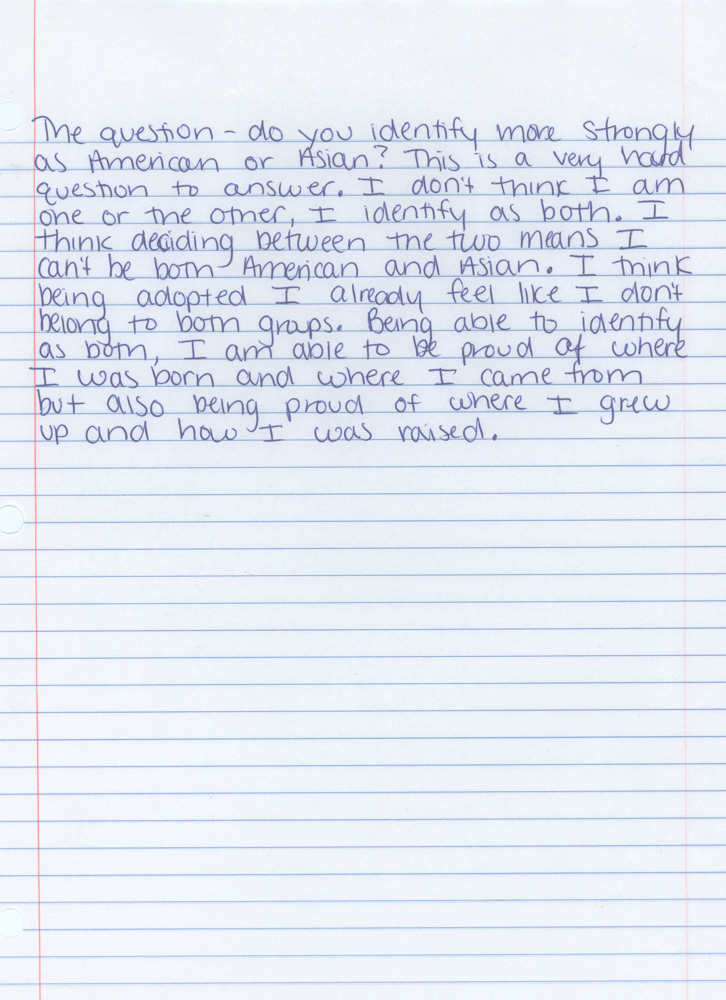 The question - do you identify more strongly
as American or Asian? This is a very hard
question to answer. I don't think I am
one or the other, I identify as both. I
think deciding between the two means I
can't be both American and Asian. I think
being adopted I already feel like I don't
belong to both graps. Being able to identify
as both, I am able to be proud of where
I was born and where I came from
but also being proud of where I grew
up and how I was raised.